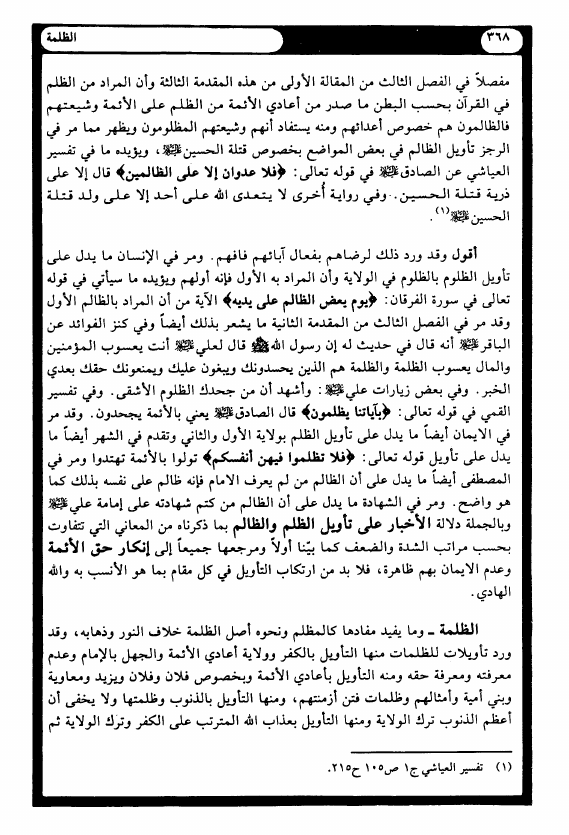 ٣٦٨
الظلمة
مفصلاً في الفصل الثالث من المقالة الأولى من هذه المقدمة الثالثة وأن المراد من الظلم
في القرآن بحسب البطن ما صدر من أعادي الأئمة من الظلم على الأئمة وشيعتهم
فالظالمون هم خصوص أعدائهم ومنه يستفاد أنهم وشيعتهم المظلومون ويظهر مما مر في
الرجز تأويل الظالم في بعض المواضع بخصوص قتلة الحسين عليه السلام، ويؤيده ما في تفسير
العياشي عن الصادق عليه السلام في قوله تعالى: ﴿فلا عدوان إلا على الظالمين﴾ قال إلا على
ذرية قتلة الحسين. وفي رواية أُخرى لا يتعدى الله على أحد إلا على ولد قتلة
الحسين عليه السلام(١).
أقول وقد ورد ذلك لرضاهم بفعال آبائهم فافهم. ومر في الإنسان ما يدل على
تأويل الظلوم بالظلوم في الولاية وأن المراد به الأول فإنه أولهم ويؤيده ما سيأتي في قوله
تعالى في سورة الفرقان: ﴿يوم يعض الظالم على يديه﴾ الآية من أن المراد بالظالم الأول
وقد مر في الفصل الثالث من المقدمة الثانية ما يشعر بذلك أيضاً وفي كنز الفوائد عن
الباقر عليه السلام أنه قال في حديث له إن رسول الله ﷺ قال لعلي عليه السلام أنت يعسوب المؤمنين
والمال يعسوب الظلمة والظلمة هم الذين يحسدونك ويبغون عليك ويمنعونك حقك بعدي
الخبر. وفي بعض زيارات علي عليه السلام: وأشهد أن من جحدك الظلوم الأشقى. وفي تفسير
القمي في قوله تعالى: ﴿بآياتنا يظلمون﴾ قال الصادق عليه السلام يعني بالأئمة يجحدون. وقد مر
في الايمان أيضاً ما يدل على تأويل الظلم بولاية الأول والثاني وتقدم في الشهر أيضاً ما
يدل على تأويل قوله تعالى: ﴿فلا تظلموا فيهن أنفسكم﴾ تولوا بالأئمة تهتدوا ومر في
المصطفى أيضاً ما يدل على أن الظالم من لم يعرف الامام فإنه ظالم على نفسه بذلك كما
هو واضح. ومر في الشهادة ما يدل على أن الظالم من كتم شهادته على إمامة علي عليه السلام
وبالجملة دلالة الأخبار على تأويل الظلم والظالم بما ذكرناه من المعاني التي تتفاوت
بحسب مراتب الشدة والضعف كما بيّنا أولاً ومرجعها جميعاً إلى إنكار حق الأئمة
وعدم الايمان بهم ظاهرة، فلا بد من ارتكاب التأويل في كل مقام بما هو الأنسب به والله
الهادي.
الظلمة ـ وما يفيد مفادها كالمظلم ونحوه أصل الظلمة خلاف النور وذهابه، وقد
ورد تأويلات للظلمات منها التأويل بالكفر وولاية أعادي الأئمة والجهل بالإمام وعدم
معرفته ومعرفة حقه ومنه التأويل بأعادي الأئمة وبخصوص فلان وفلان ويزيد ومعاوية
وبني أمية وأمثالهم وظلمات فتن أزمنتهم، ومنها التأويل بالذنوب وظلمتها ولا يخفى أن
أعظم الذنوب ترك الولاية ومنها التأويل بعذاب الله المترتب على الكفر وترك الولاية ثم
(١) تفسير العياشي ج١ ص١٠٥ ح٢١٥.